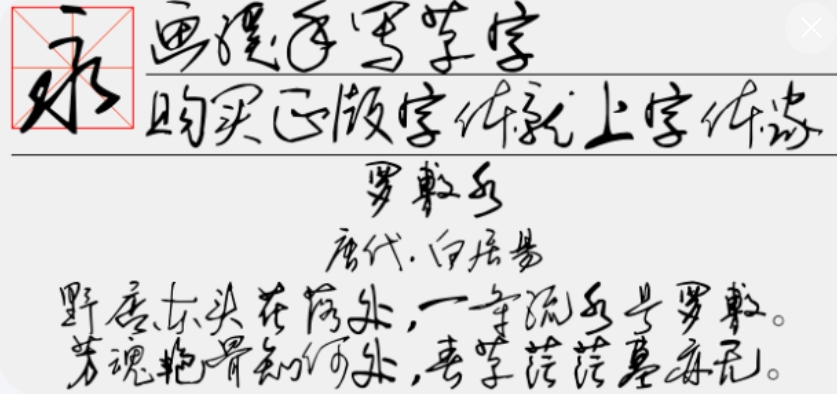 永
画漫手写草字
购买正版字体就上字体家
罗敷水
唐代·白居易
野店东头花落处,一条流水号罗敷。
芳魂艳骨知何处,春草茫茫墓亦无。